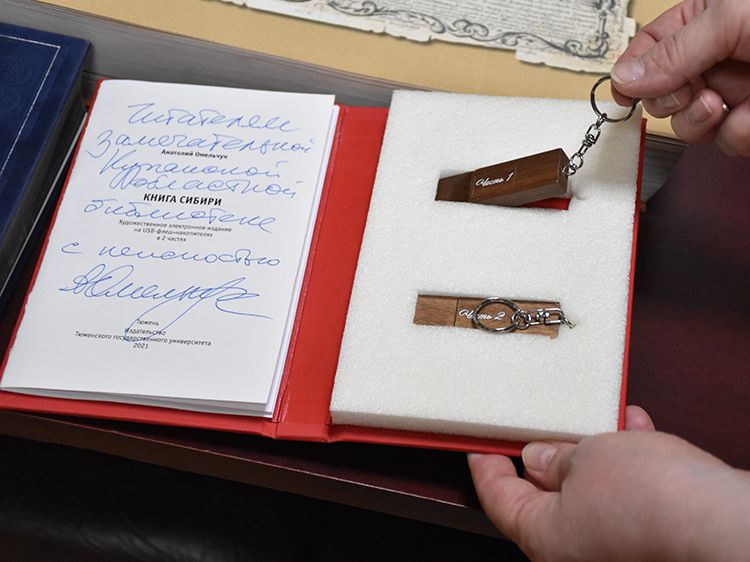 Читателям
Замечательной
Анатолий Омельчук
Курганской
Областной
КНИГА СИБИРИ
библиотеке
Художественное электронное издание
на USB-флеш-накопителях
в 2 частях
с
Тюмень
Издательство
Тюменского государственного университета
2021
Часть 1
Часть 2